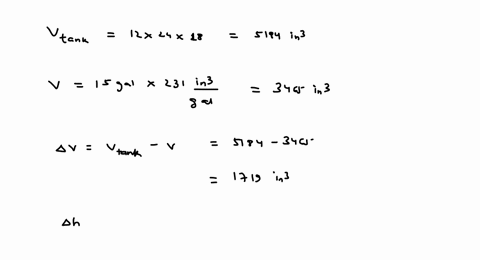 V tank = 12 x 24 x 18 = 5184 in3
V = 15 gal x 231 in3/gal = 3465 in3
ΔV = V tank - V = 5184 - 3465
= 1719 in3
Δh